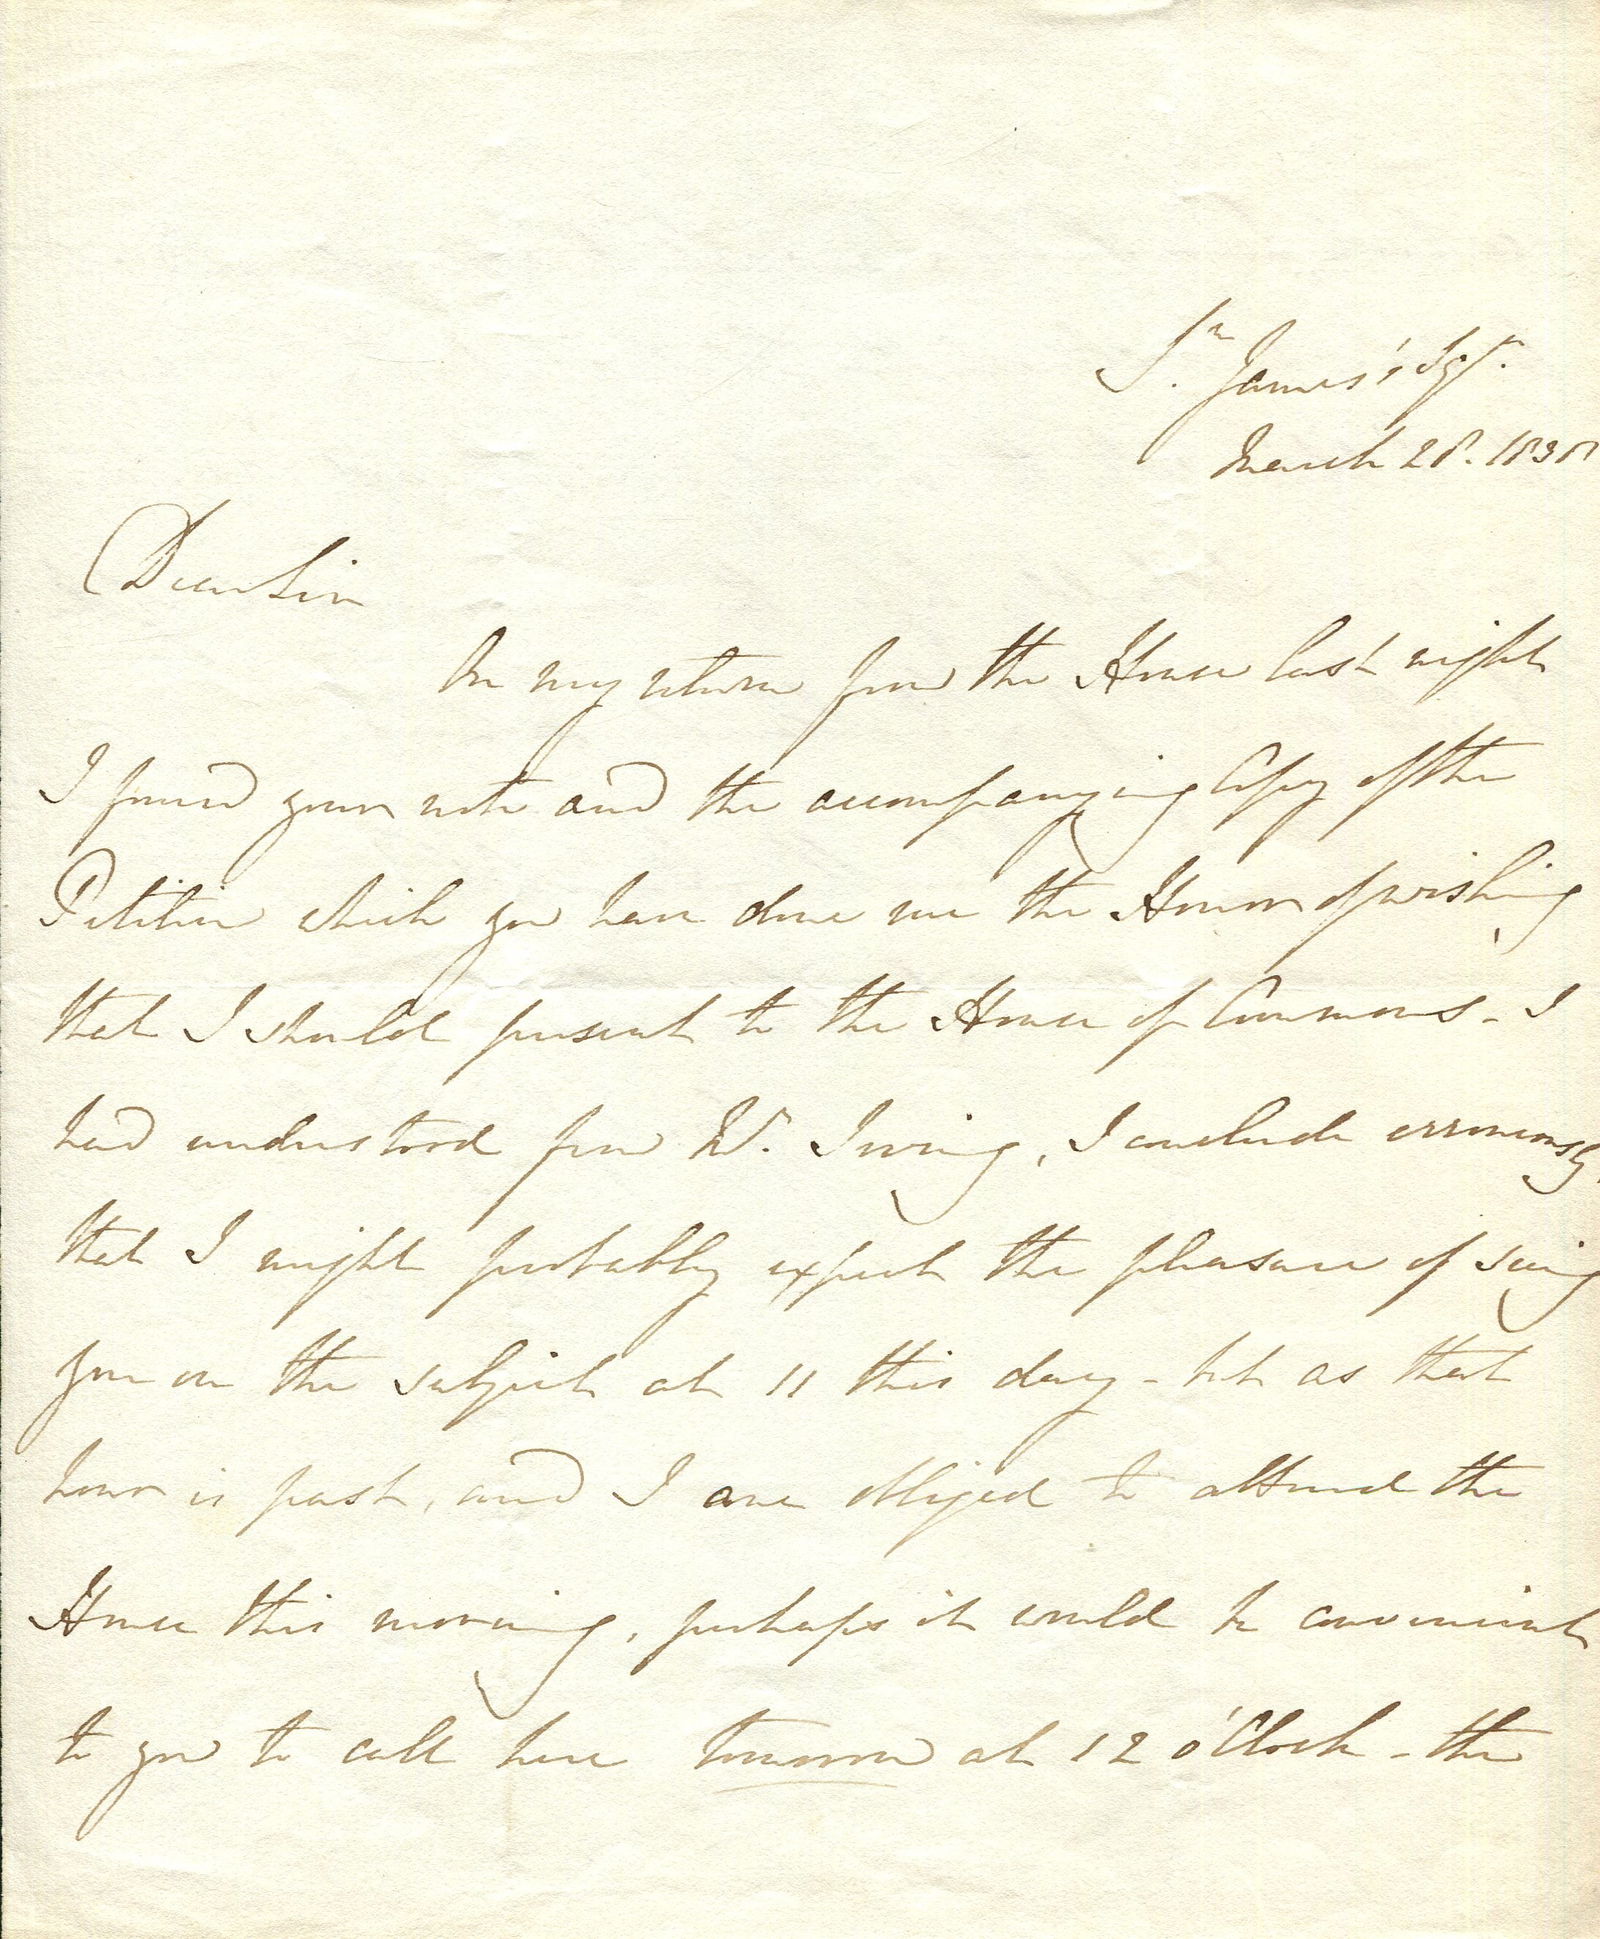 St. James's Sqr.
March 28. 1838
Dear Sir
On my return from the House last night
I found your note and the accompanying Copy of the
Petition which you have done me the Honor of wishing
that I should present to the House of Commons - I
had understood from Mr. Irving, I conclude erroneously,
that I might probably expect the pleasure of seeing
you on the subject at 11 this day - but as that
hour is past, and I am obliged to attend the
House this morning, perhaps it would be convenient
to you to call here tomorrow at 12 o'Clock - the